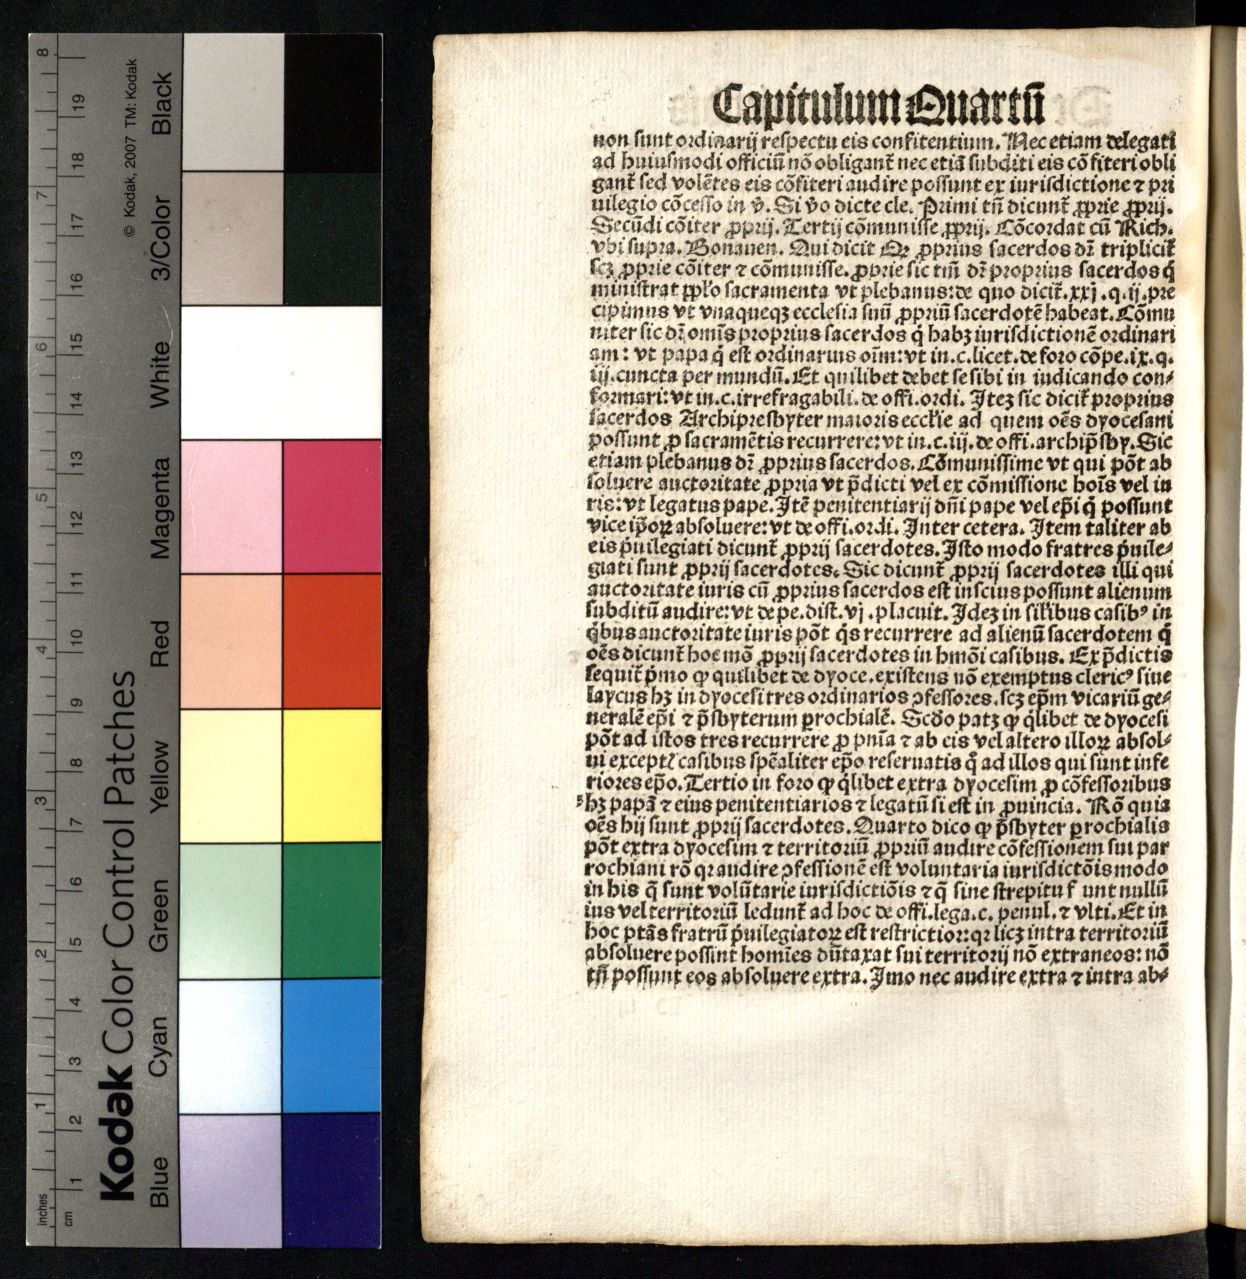 Capitulum Quartū
non sunt ordinarij respectu eis confitentium. Nec etiam delegati
ad huiusmodi officiū nō obligant̄ nec etiā subditi eis cōfiteri obli
gant̄ sed volētes eis cōfiteri audire possunt ex iurisdictione ⁊ pri
uilegio cōcesso in v̄. Si v̄o dicte cle. Primi tn̄ dicunt̄ ꝓprie ꝓprij.
Secūdi cōiter ꝓprij. Tertij cōmunisse ꝓprij. Cōcordat cū Rich.
vbi supra. Bonauen. Qui dicit Qꝫ ꝓprius sacerdos dr̄ triplicit̄
scꝫ ꝓprie cōiter ⁊ cōmunisse. ꝓprie sic tm̄ dr̄ proprius sacerdos q̇
ministrat ꝓpl'o sacramenta vt plebanus: de quo dicit̄. xxj. q. ij. pre
cipimus vt vnaqueqꝫ ecclesia suū ꝓpriū sacerdotē habeat. Cōmu
niter sic dr̄ omīs proprius sacerdos q̇ habꝫ iurisdictionē ordinari
am: vt papa q̇ est ordinarius oīm: vt in. c. licet. de foro cōpe. ix. q.
iij. cuncta per mundū. Et quilibet debet se sibi in iudicando con⸗
formari: vt in. c. irrefragabili. de offi. ordi. Iteꝫ sic dicit̄ proprius
sacerdos Archipresbyter maioris eccl'ie ad quem oēs dyocesani
possunt ꝓ sacramētis recurrere: vt in. c. iij. de offi. archip̄sby. Sic
etiam plebanus dr̄ ꝓprius sacerdos. Cōmunissime vt qui pōt ab
soluere auctoritate ꝓpria vt p̄dicti vel ex cōmissione hoīs vel iu
ris: vt legatus pape. Itē penitentiarij dn̄i pape vel ep̄i q̇ possunt
vice ip̄oꝝ absoluere: vt de offi. ordi. Inter cetera. Item taliter ab
eis p̄uilegiati dicunt̄ ꝓprij sacerdotes. Isto modo fratres p̄uile⸗
giati sunt ꝓprij sacerdotes. Sic dicunt̄ ꝓprij sacerdotes illi qui
auctoritate iuris cū ꝓprius sacerdos est inscius possunt alienum
subditū audire: vt de pe. dist. vj. placuit. Ideꝫ in sil'ibus casibꝰ in
q̇bus auctoritate iuris pōt q̇s recurrere ad alienū sacerdotem q̇
oēs dicunt̄ hoc mō ꝓprij sacerdotes in hmōi casibus. Ex p̄dictis
sequit̄ p̄mo ꝙ quilibet de dyoce. existens nō exemptus clericꝰ siue
laycus hꝫ in dyocesi tres ordinarios ꝯfessores. scꝫ ep̄m vicariū ge⸗
neralē ep̄i ⁊ p̄sbyterum ꝑrochialē. Scd̄o patꝫ ꝙ q̇libet de dyocesi
pōt ad istos tres recurrere ꝓ pn̄ia ⁊ ab eis vel altero illoꝝ absol⸗
ui exceptꝭ casibus spēaliter ep̄o reseruatis q̊ ad illos qui sunt infe
riores ep̄o. Tertio in foro ꝙ q̇libet extra dyocesim ꝓ cōfessoribus
hꝫ papā ⁊ eius penitentiarios ⁊ legatū si est in ꝓuincia. Rō quia
oēs hij sunt ꝓprij sacerdotes. Quarto dico ꝙ p̄sbyter ꝑrochialis
pōt extra dyocesim ⁊ territoriū ꝓpriū audire cōfessionem sui par
rochiani rō qꝛ audire ꝯfessionē est voluntaria iurisdictōis modo
in his q̄ sunt volūtarie iurisdictiōis ⁊ q̄ sine strepitu f unt nullū
ius vel territoriū ledunt̄ ad hoc de offi. lega. c. penul. ⁊ vlti. Et in
hoc ptās fratrū p̄uilegiatoꝝ est restrictior: qꝛ licꝫ intra territoriū
absoluere possint homīes dūtaxat sui territorij nō extraneos: nō
tn̄ possunt eos absoluere extra. Imo nec audire extra ⁊ intra ab⸗
© Kodak, 2007 TM: Kodak
Kodak Color Control Patches
Blue Cyan Green Yellow Red Magenta White 3/Color Black
inches 1 2 3 4 5 6 7 8
cm 1 2 3 4 5 6 7 8 9 10 11 12 13 14 15 16 17 18 19